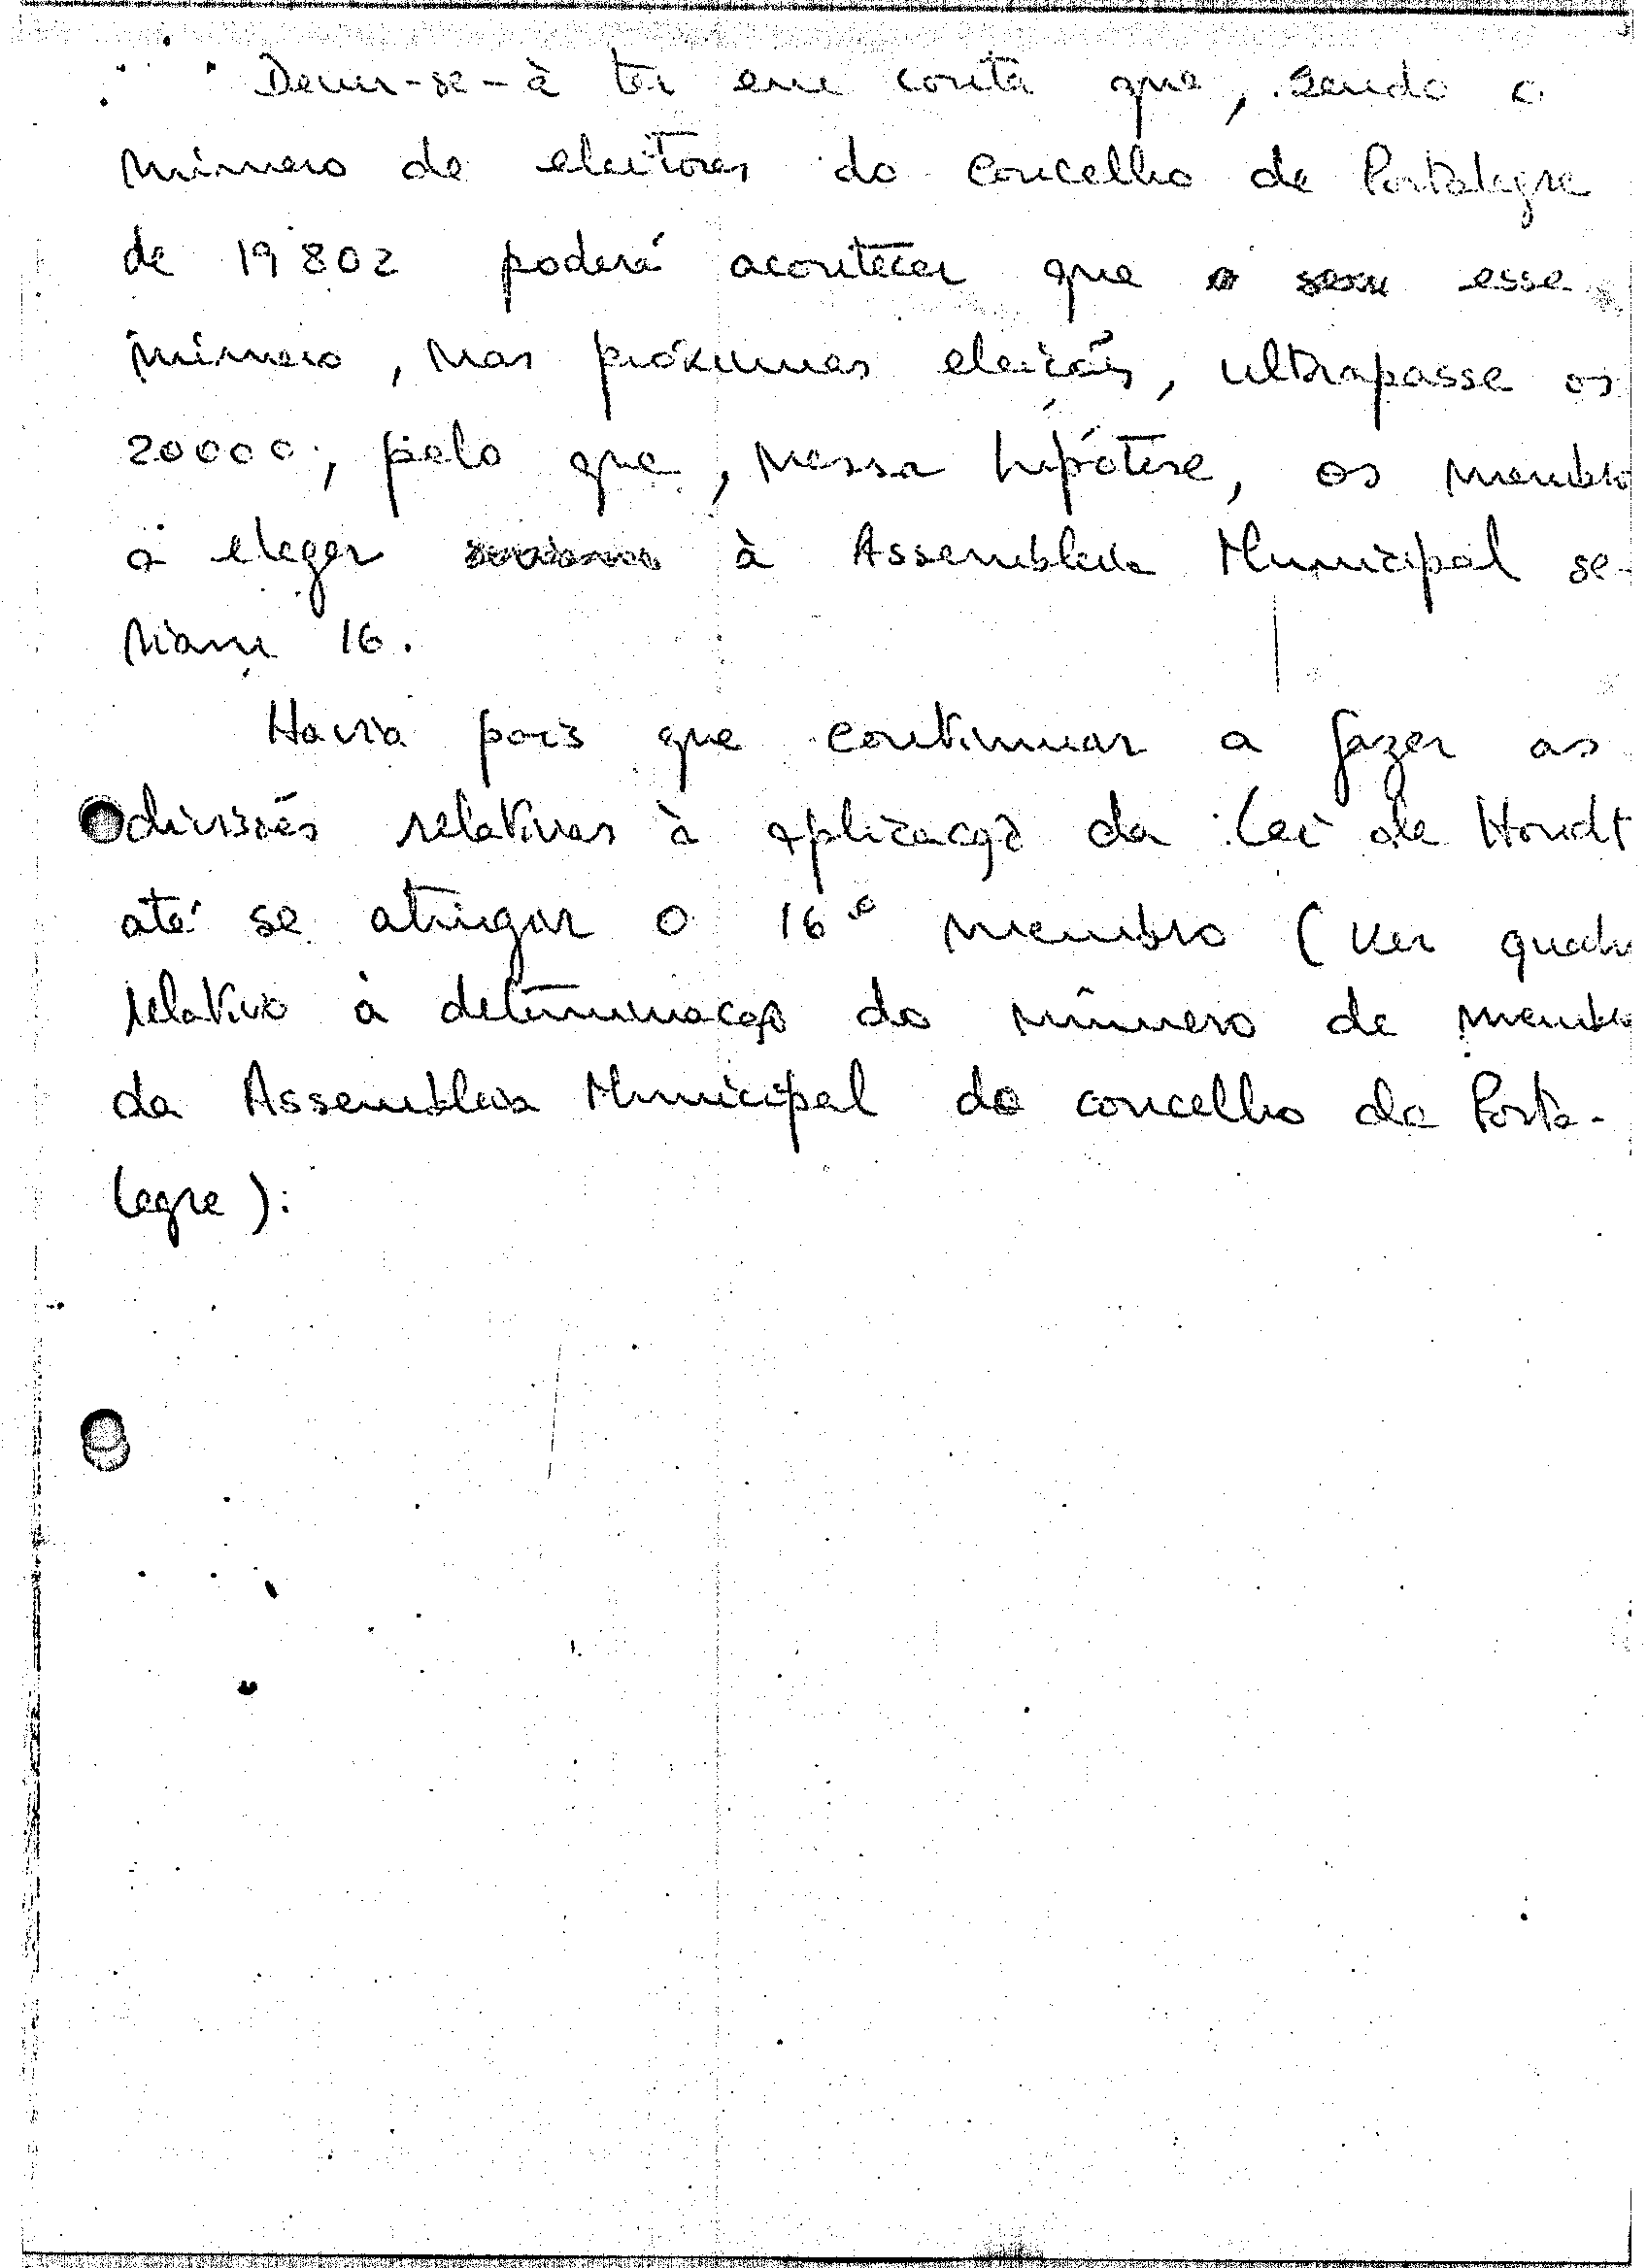 Dever-se-à ter em conta que, sendo o
número de eleitores do concelho de Portalegre
de 19802 poderá acontecer que esse
número, nas próximas eleições, ultrapasse os
20000, pelo que, nessa hipótese, os membro
a eleger à Assembleia Municipal se-
riam 16.
Havia pois que continuar a fazer as
divisões relativas à aplicação da Lei de Hondt
até se atingir o 16º membro (ver quadro
relativo à determinação do número de membro
da Assembleia Municipal do concelho de Porta-
legre).